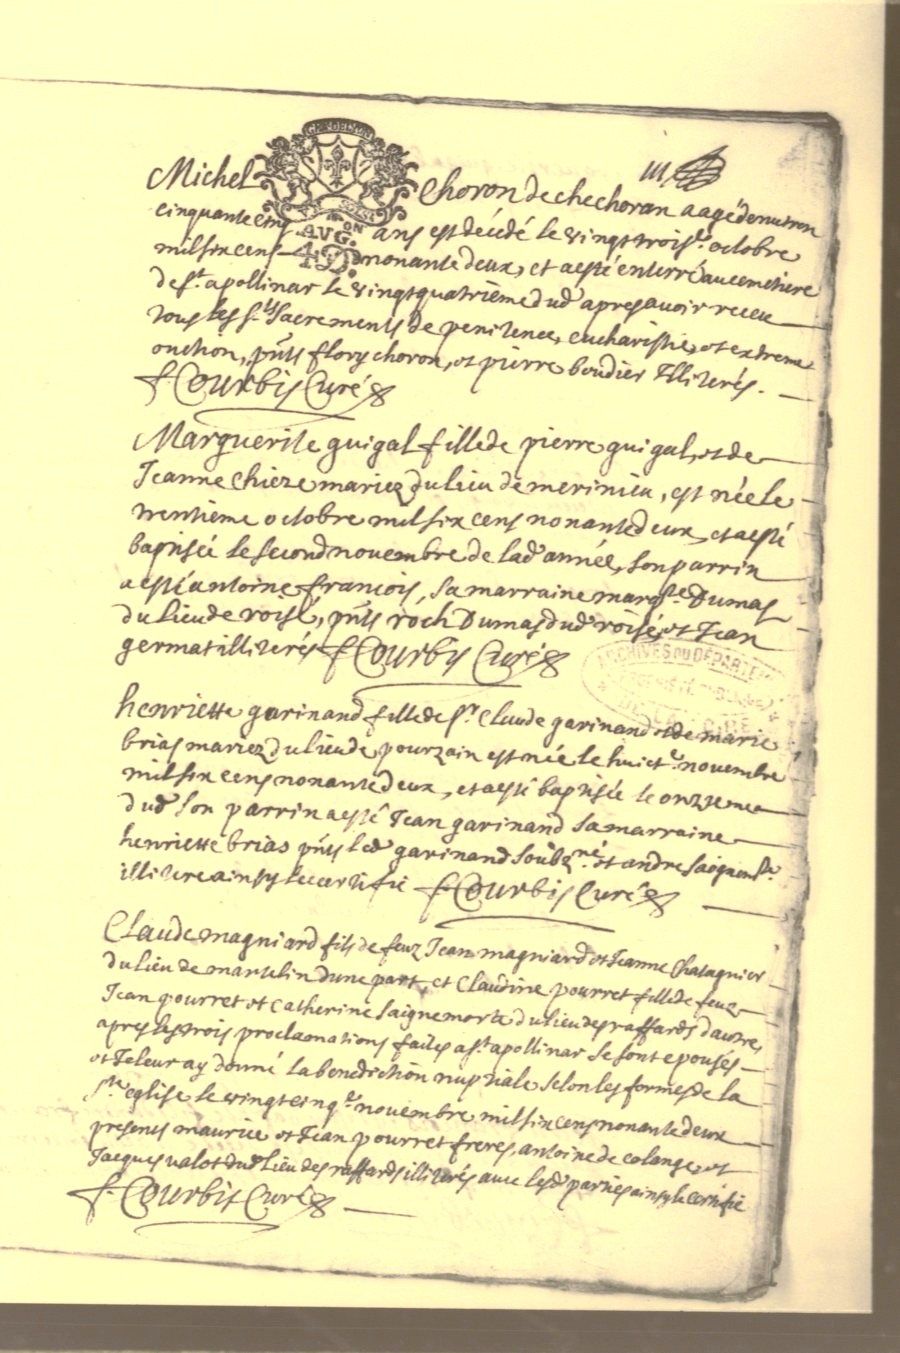 GEN. DE LYON
III
Michel Choron de chechoran aagé denuiron
cinquante cinq ans est décédé le vingt trois.e octobre
AVG.ON
mil six cens nonante deux, et a esté enterré au cemetiere
49D.
de S.t apollinar le vingt quatriéme dud apres avoir receu
tous les S.ts Sacrements de penitence, eucharistie, et extreme
onction, pñts flory choron, et pierre boudier Illiterés.
f Courbis Curé
Marguerite guigal fille de pierre guigal, et de
Jeanne Chieze mariez du lieu de merinieu, est née le
trentiéme octobre mil six cens nonante deux, et a esté
baptisée le second novembre de lad année, son parrin
a esté antoine françois, sa marraine marg.te Dumas
du lieu de roisé, pñts roch Dumas dud roisé, et Jean
germat illiterés f Courbis Curé
ARCHIVES DU DÉPARTEM
henriette garinand fille de S.r Claude garinand et de marie
brias mariez du lieu de pourzain est née le huict.e novembre
mil six cens nonante deux, et a esté baptisée le onzieme
dud son parrin a esté Jean garinand sa marraine
henriette brias pñts led garinand soubz.né et andre
illitere ainsy le certifie f Courbis Curé
Claude magniard fils de feuz Jean magniard et Jeanne Chatagnier
du lieu de marselin dune part, et Claudine pourret fille de feuz
Jean pourret et Catherine saignemorte du lieu des raffards dautre
apres les trois proclamations faites a S.t apollinar se sont epousés
et Je leur ay donné la benediction nuptiale selon les formes de la
S.te eglise le vingt cinq.e novembre mil six cens nonante deux
presents maurice et Jean pourret freres, antoine de colange, et
Jacques valot dud lieu des raffards illiterés avec lesd parties ainsy le certifie
f. Courbis Curé